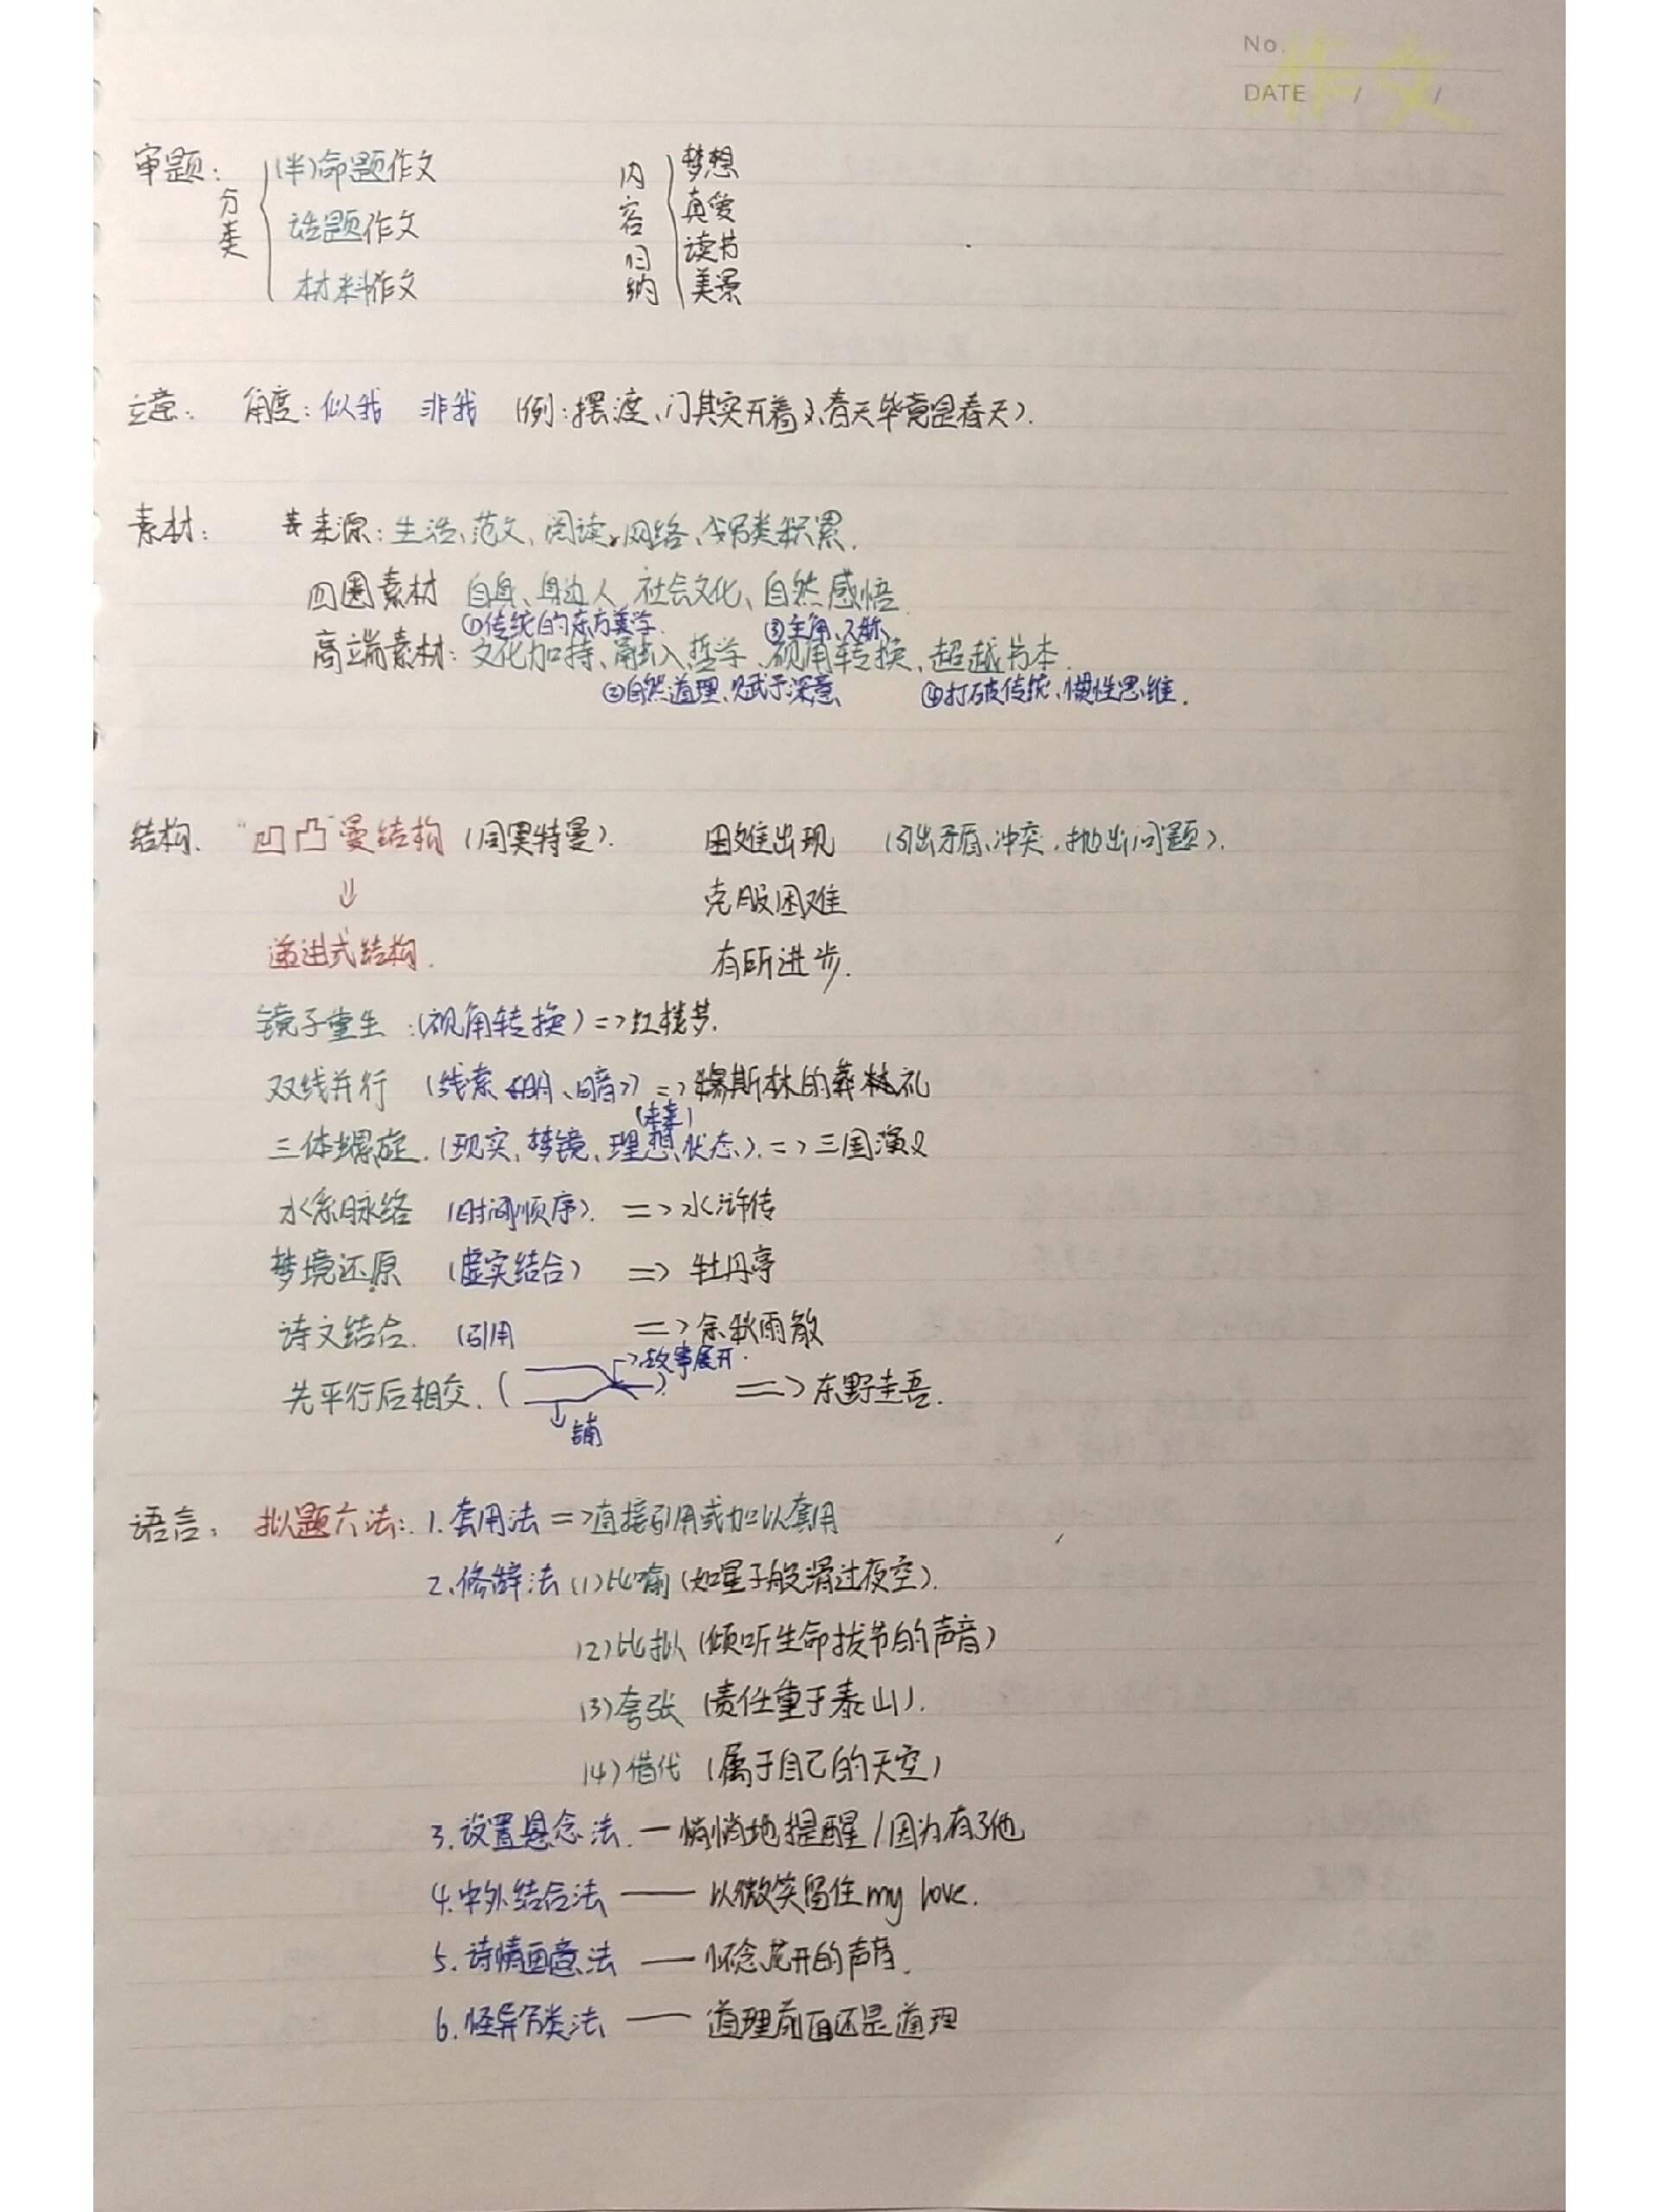 No.
作文
DATE / /
审题：
分类
(半)命题作文
话题作文
材料作文
内容归纳
梦想
真爱
读书
美景
立意： 角度：似我 非我 (例：摆渡、门其实开着、春天毕竟是春天).
素材： 来源：生活、范文、阅读、网络、分类积累.
四圈素材 自身、身边人、社会文化、自然感悟.
①传统的东方美学. ③主角、
高端素材：文化加持、融入哲学、视角转换、超越书本.
②自然道理、赋予深意 ④打破传统、惯性思维.
结构. “凹凸”曼结构 (同奥特曼). 困难出现 (引出矛盾、冲突.抛出问题).
⇓ 克服困难
递进式结构. 有所进步.
镜子重生：(视角转换) => 红楼梦.
双线并行 (线索 明、暗) => 穆斯林的葬礼
(未来)
三体螺旋. (现实、梦镜、理想状态). => 三国演义
水系脉络 (时间顺序). => 水浒传
梦境还原 (虚实结合) => 牡丹亭
诗文结合. (引用 => 余秋雨散
->故事展开.
先平行后相交. ( ) => 东野圭吾.
铺
语言： 拟题六法：1.套用法 => 直接引用或加以套用
2.修辞法 (1)比喻 (如星子般滑过夜空).
(2)比拟 (倾听生命拔节的声音)
(3)夸张 (责任重于泰山).
(4)借代 (属于自己的天空)
3.设置悬念法. — 悄悄地提醒/因为有了他
4.中外结合法 —— 以微笑留住my love.
5.诗情画意法 —— 怀念花开的声音.
6.怪异另类法 —— 道理前面还是道理